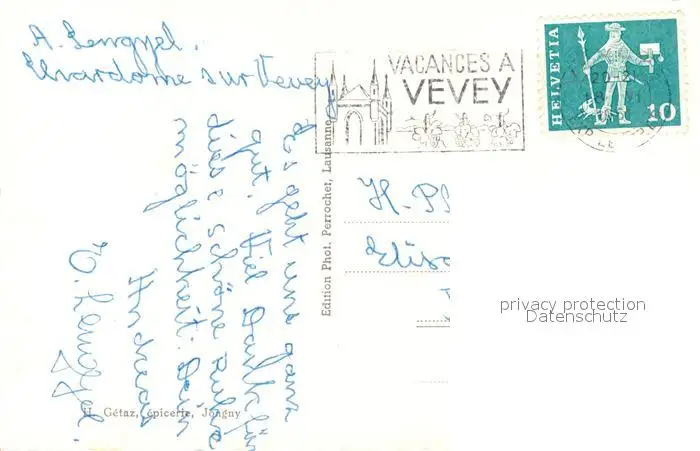 A. Lengyel.
sur Vevey
VACANCES A
VEVEY
HELVETIA
10
Es geht uns ganz
gut. Viel Dank für
diese schöne Ruhe
möglichkeit. Dein
Andreas
E. Lengyel.
Edition Phot. Perrochet, Lausanne
H. Pf
Elisa
privacy protection
Datenschutz
H. Gétaz, épicerie, Jongny